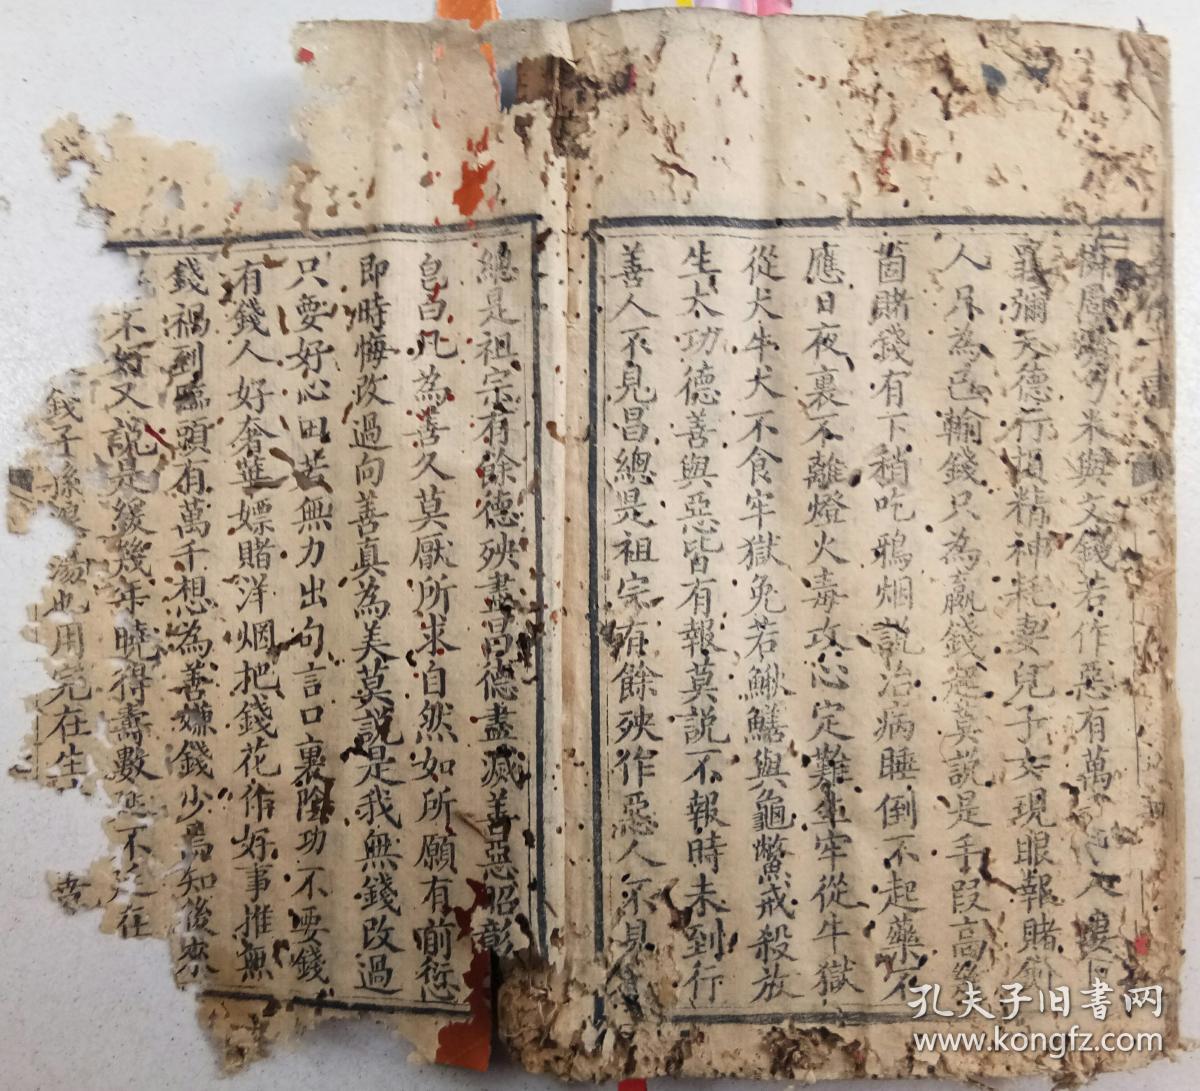 米與文錢若作惡有萬
彌天德行損精神耗妻兒子女現眼報賭
人只為己輸錢只為贏錢莫說是手段高
箇賭錢有下稍吃鴉烟說治病睡倒不起藥不
應日夜裏不離燈火毒攻心定難生牢從牛獄
從犬牛犬不食牢獄免若鰍鱔與龜鱉戒殺放
生大功德善與惡皆有報莫說不報時未到行
善人不見昌總是祖宗有餘殃作惡人不見
總是祖宗有餘德殃盡昌德盡滅善惡昭彰
皂白凡為善久莫厭所求自然如所願有前愆
即時悔改過向善真為美莫說是我無錢改過
只要好心田若無力出句言口裏陰功不要錢
有錢人好奢華嫖賭洋烟把錢花作好事推無
錢禍到臨頭有萬千想為善嫌錢少焉知後來
不好又說是緩幾年曉得壽數延不延在
錢子孫浪蕩也用完在生
孔夫子旧書网
www.kongfz.com